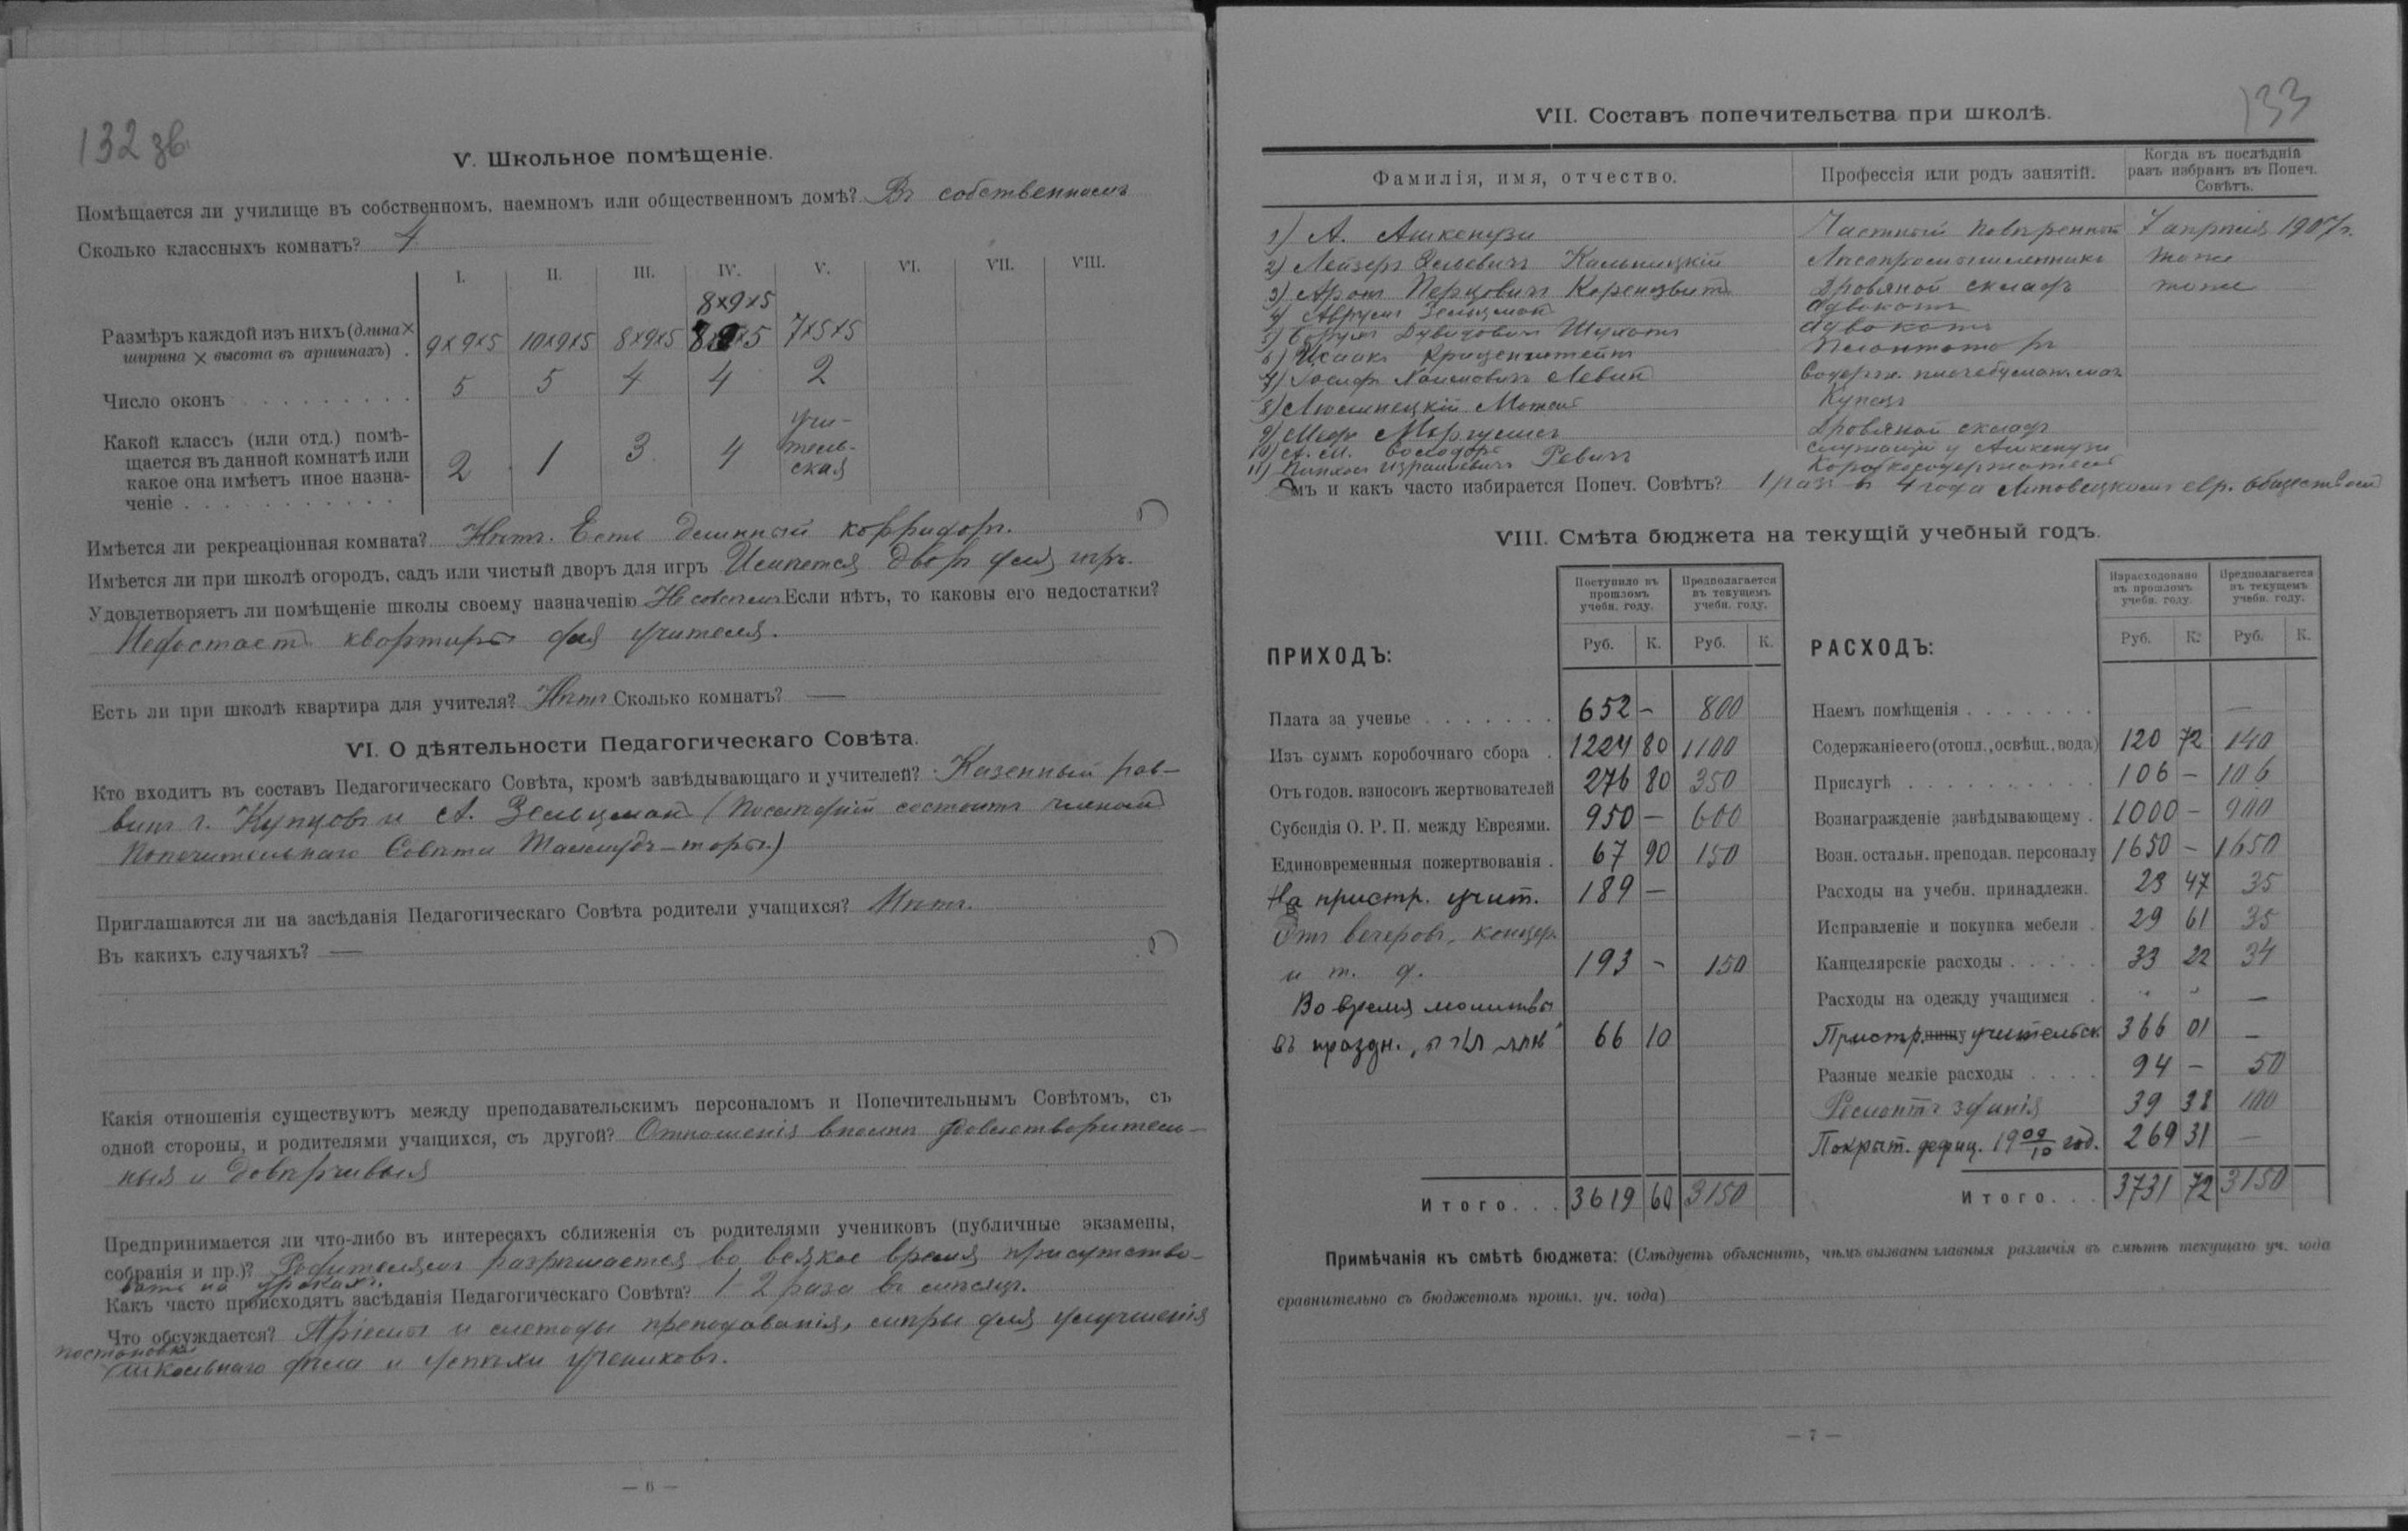 132 зв.
V. Школьное помѣщеніе.
Помѣщается ли училище въ собственномъ, наемномъ или общественномъ домѣ? Въ собственномъ
Сколько классныхъ комнатъ? 4
I. II. III. IV. V. VI. VII. VIII.
8×9×5
Размѣръ каждой изъ нихъ (длина ×
ширина × высота въ аршинахъ) . 9×9×5 10×9×5 8×9×5 7×5×5
Число оконъ . . . . . . . . . 5 5 4 4 2
Какой классъ (или отд.) помѣ-
щается въ данной комнатѣ или
какое она имѣетъ иное назна-
ченіе . . . . . . . . . . 2 1 3 4 учи-
тель-
ская
Имѣется ли рекреаціонная комната? Нѣтъ. Есть длинный корридоръ.
Имѣется ли при школѣ огородъ, садъ или чистый дворъ для игръ Имѣется дворъ для игръ.
Удовлетворяетъ ли помѣщеніе школы своему назначенію Не совсѣмъ Если нѣтъ, то каковы его недостатки?
Недостаетъ квартиры для учителя.
Есть ли при школѣ квартира для учителя? Нѣтъ Сколько комнатъ? —
VI. О дѣятельности Педагогическаго Совѣта.
Кто входитъ въ составъ Педагогическаго Совѣта, кромѣ завѣдывающаго и учителей? Казенный рав-
винъ г. Купцовъ и А. Зельцманъ (послѣдній состоитъ членомъ
Попечительнаго Совѣта Талмудъ-торы.)
Приглашаются ли на засѣданія Педагогическаго Совѣта родители учащихся? Нѣтъ.
Въ какихъ случаяхъ? —
Какія отношенія существуютъ между преподавательскимъ персоналомъ и Попечительнымъ Совѣтомъ, съ
одной стороны, и родителями учащихся, съ другой? Отношенія вполнѣ удовлетворитель-
ныя и довѣрчивыя
Предпринимается ли что-либо въ интересахъ сближенія съ родителями учениковъ (публичные экзамены,
собранія и пр.)? Родителямъ разрѣшается во всякое время присутство-
вать на урокахъ.
Какъ часто происходятъ засѣданія Педагогическаго Совѣта? 1-2 раза въ мѣсяцъ.
Что обсуждается? Пріемы и методы преподаванія, мѣры для улучшенія
постановки
школьнаго дѣла и успѣхи учениковъ.
— 6 —
133
VII. Составъ попечительства при школѣ.
Фамилія, имя, отчество. Профессія или родъ занятій. Когда въ послѣдній
разъ избранъ въ Попеч.
Совѣтъ.
1) А. Ашкенузи Частный повѣренный 7 апрѣля 1907 г.
2) Лейзеръ Кальницкій Лѣсопромышленникъ тоже
3) Аронъ Перцовичъ Коренцвитъ Дровяной складъ тоже
4) Аврумъ Зельцманъ адвокатъ
5) Борухъ Дувидовичъ адвокатъ
6) Исаакъ
7) Іосифъ Хаимовичъ Левинъ
8) Купецъ
9) Меер Маргулисъ Дровяной складъ
10) А. М. служащій у Ашкенузи
11) Пинхасъ Израилевичъ Ревичъ Коробкосодержатель
мъ и какъ часто избирается Попеч. Совѣтъ? 1 разъ въ 4 года Липовецкимъ евр. обществомъ
VIII. Смѣта бюджета на текущій учебный годъ.
ПРИХОДЪ: Поступило въ
прошломъ
учебн. году. Предполагается
въ текущемъ
учебн. году.
Руб. К. Руб. К.
Плата за ученье . . . . . . . 652 — 800
Изъ суммъ коробочнаго сбора . 1224 80 1100
Отъ годов. взносовъ жертвователей 276 80 350
Субсидія О. Р. П. между Евреями. 950 — 600
Единовременныя пожертвованія . 67 90 150
На пристр. учит. 189 —
Отъ вечеровъ, концер.
и т. д. 193 - 150
Во время молитвы
въ праздн. 66 10
Итого. . . 3619 60 3150
РАСХОДЪ: Израсходовано
въ прошломъ
учебн. году. Предполагается
въ текущемъ
учебн. году.
Руб. К. Руб. К.
Наемъ помѣщенія . . . . . . . —
Содержаніе его (отопл., освѣщ., вода) 120 72 140
Прислугѣ . . . . . . . . . . 106 — 106
Вознагражденіе завѣдывающему . 1000 — 900
Возн. остальн. преподав. персоналу 1650 — 1650
Расходы на учебн. принадлежн. 23 47 35
Исправленіе и покупка мебели . 29 61 35
Канцелярскіе расходы . . . . . 33 22 34
Расходы на одежду учащимся . " " —
Пристр. учительск 366 01 —
Разные мелкіе расходы . . . . 94 — 50
Ремонтъ зданія 39 38 100
Покрыт. дефиц. 19 09/10 год. 269 31 —
Итого. . . 3731 72 3150
Примѣчанія къ смѣтѣ бюджета: (Слѣдуетъ объяснить, чѣмъ вызваны главныя различія въ смѣтѣ текущаго уч. года
сравнительно съ бюджетомъ прошл. уч. года)
— 7 —